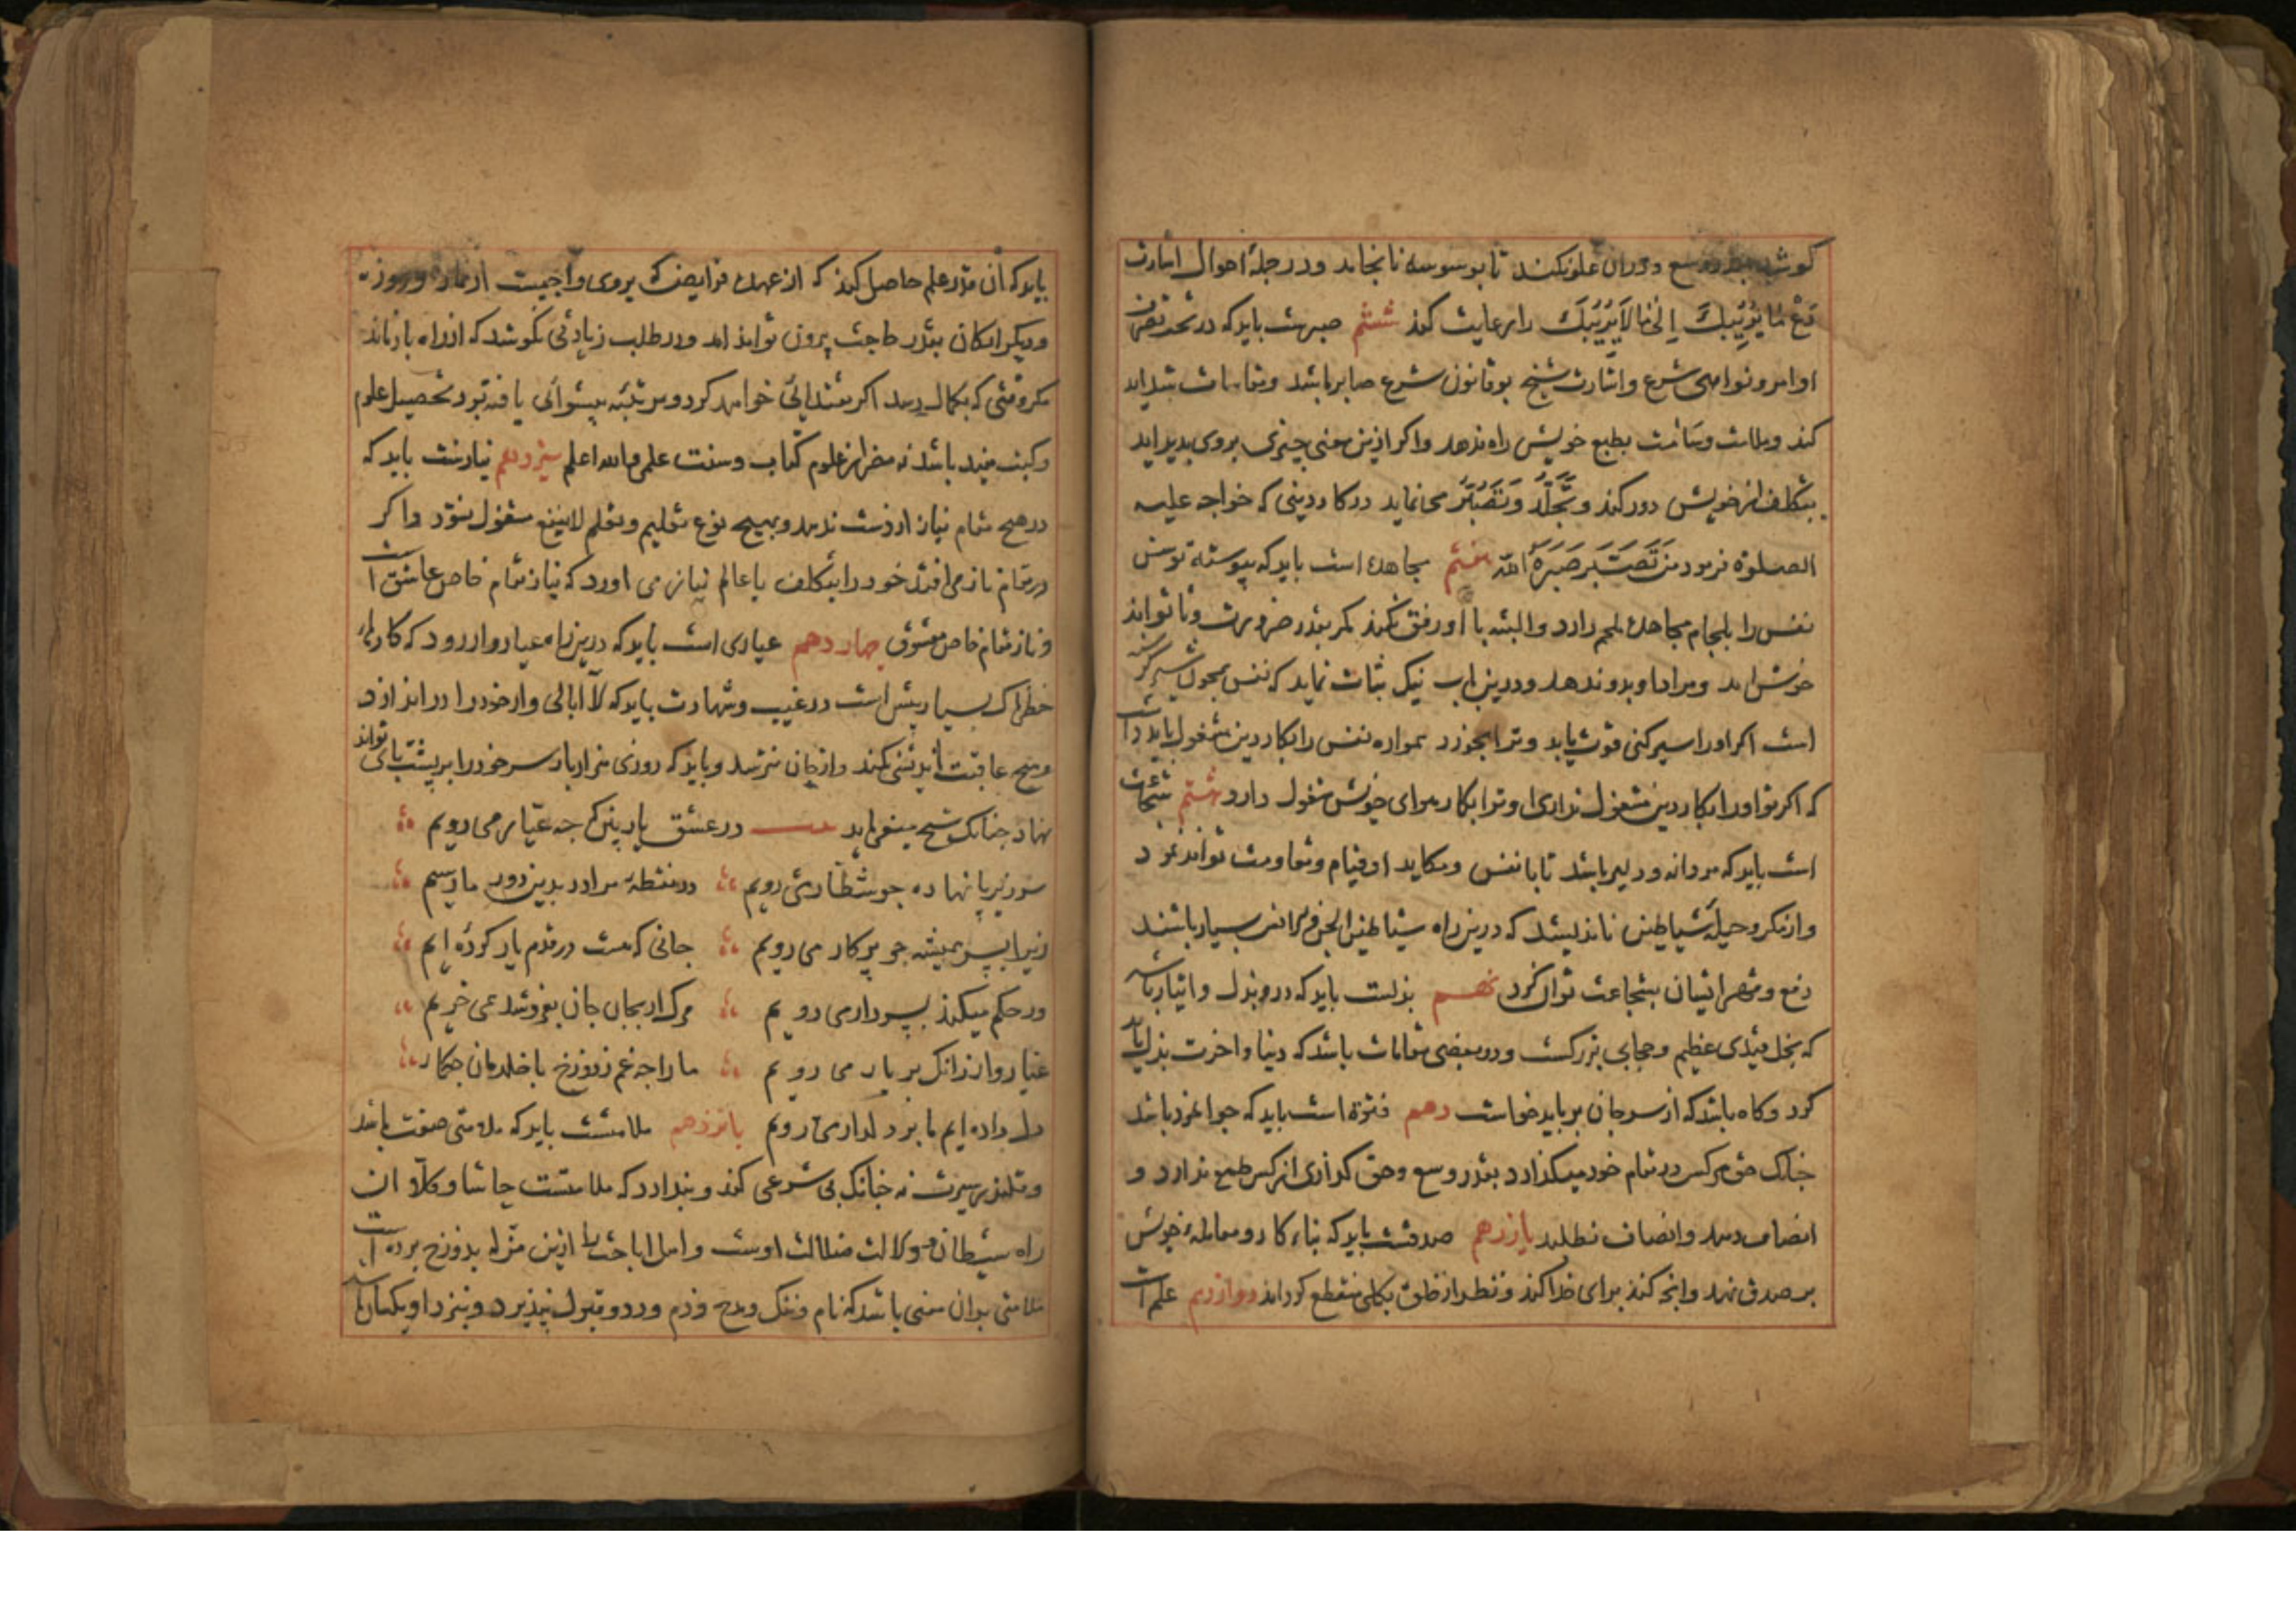 کوشد بقدر وسع و دران غلو نکند تا بوسوسه نانجامد و در جملهٔ احوال اشارت
دَعْ مَا یُرِیْبُكَ اِلیٰ مَا لَایُرِیْبُكَ را رعایت کند ششم صبرست باید که در تحت تصرف
اوامر و نواهی شرع و اشارت شیخ بر قانون شرع صابر باشد و مقاسات شداید
کند و ملامت و سآمت بطبع خویش راه ندهد و اگر ازین معنی چیزی بروی پدید اید
بتکلف از خویش دور کند و تَجَلُّدْ وَ تَصَبُّر می نماید در کار دینی که خواجه علیه
الصلوة فرمود مَنْ تَصَبَّرَ صَبَّرَهُ اللّٰه هفتم مجاهده است باید که پیوسته توسن
نفس را بلجام مجاهده ملجم دارد و البته با او رفق نکند مگر بقدر ضرورت و تا تواند
خوش اید و مراد او بدو ندهد و درین باب نیک ثبات نماید که نفس همچون شیر گرسنه
است اگر او را سیر کنی قوت یابد و ترا بخورد همواره نفس را بکار دین مشغول باید داشت
که اگر تو او را بکار دین مشغول نداری او ترا بکار هوای خویش مشغول دارد هشتم شجاعت
است باید که مردانه و دلیر باشد تا با نفس و مکاید او قیام و مقاومت تواند نمود
و از مکر و حیلهٔ شیاطین نااندیشد که درین راه شیاطین الجن و الانس بسیار باشند
دفع و قهر ایشان بشجاعت توان کرد نهم بذلست باید که درو بذل و ایثار باشد
که بخل قیدی عظیم و حجابی بزرکست و در بعضی مقامات باشد که دنیا و اخرت بذل باید
کرد و کاه باشد که از سر جان بر باید خواست دهم فتوة است باید که جوانمرد باشد
چنانک حق هر کس در مقام خود میگذارد بقدر وسع و حق گذاری از کس طمع ندارد و
انصاف دهد و انصاف نطلبد یازدهم صدقست باید که بناء کار و معاملهٔ خویش
بر صدق نهد و آنچه کند برای خدا کند و نظر از خلق بکلی منقطع گرداند دوازدهم علم است
باید که آن قدر علم حاصل کند که از عهدهٔ فرایض که بروی واجبست از نماز و روزه
و دیگر ارکان بقدر حاجت بیرون تواند امد و در طلب زیادتی نکوشد که از راه باز ماند
مگر وقتی که بکمال رسد اگر مقتدایی خواهد کرد و مرتبهٔ پیشوائی یافته بود تحصیل علوم
و کتب مفید باشد نه مضر از علوم کتاب و سنت علمی والله اعلم سیزدهم نیازست باید که
در هیچ مقام نیاز از دست ندهد و بهیچ نوع تعلیم و تعلم لاینفع مشغول نشود و اگر
در مقام ناز می افتد خود را بتکلف با عالم نیاز می اورد که نیاز مقام خاص عاشق است
و ناز مقام خاص معشوق چهاردهم عیاری است باید که درین راه عیار وار رود که کارهاء
خطرناک بسیار پیش است در غیب و شهادت باید که لاابالی وار خود را در اندازد
و هیچ عاقبت اندیشی نکند و از جان نترسد و باید که روزی هزار بار سر خود را بر پشت پای تواند
نهاد چنانک شیخ میفرماید در عشق یار بین که چه عیار می رویم
سر زیر پا نهاده چو شطار می رویم در نقطه مراد بدین دور ما رسیم
زیرا بسر همیشه چو پرکار می رویم جانی که هست در قدم یار کرده ایم
ور حکم میکند بسر دار می رویم مرگ ار بجان جان بفروشد همی خریم
عیار وار ز آنک بر یار می رویم ما را چه غم ز دوزخ با خلدمان چه کار
دل داده ایم ما بر دلدار می رویم پانزدهم ملامتست باید که ملامتی صفت باشد
و قلندر سیرت نه چنانک بی شرعی کند و پندارد که ملامتست حاشا و کلا ان
راه شیطان و دلالت ضلالت اوست و اهل اباحت را ازین مزله بدوزخ برده است
ملامتی بدان معنی باشد که نام و ننک و مدح و ذم و رد و قبول نپذیرد و بنزد او یکسان باشد